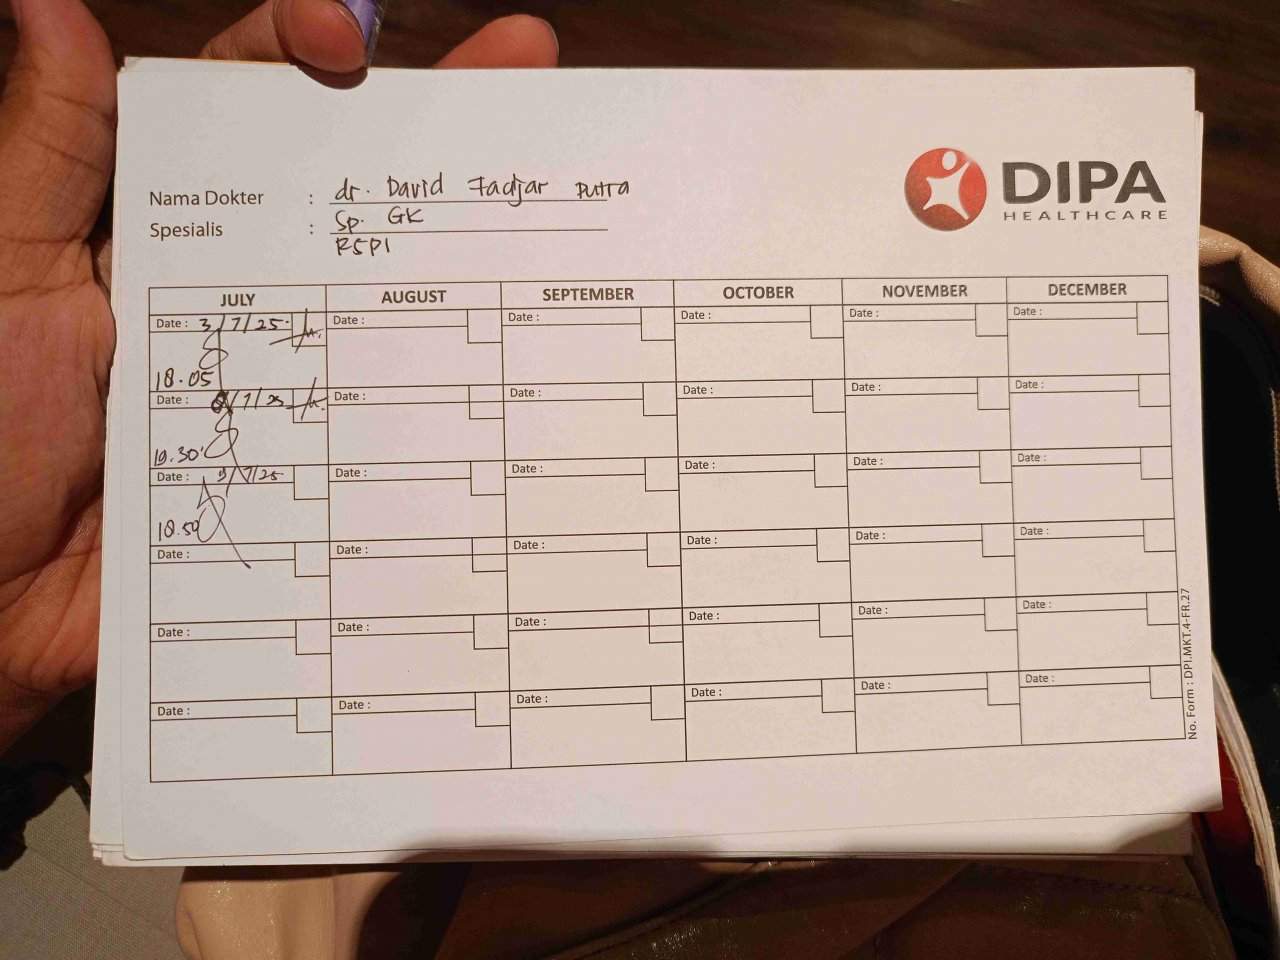 DIPA
HEALTHCARE
Nama Dokter : dr. David Fadjar Putra
Spesialis : Sp. GK
RSPI
JULY AUGUST SEPTEMBER OCTOBER NOVEMBER DECEMBER
Date : 3/7/25 Date : Date : Date : Date : Date :
18.05
Date : /7/25 Date : Date : Date : Date : Date :
19.30
Date : 9/7/25 Date : Date : Date : Date : Date :
18.50
Date : Date : Date : Date : Date : Date :
Date : Date : Date : Date : Date : Date :
Date : Date : Date : Date : Date : Date :
No. Form : DPI.MKT.4-FR.27